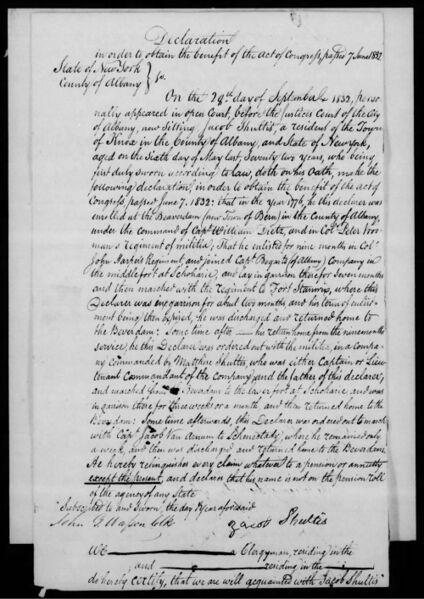 Declaration
in order to obtain the benefit of the act of Congress, passed 7 June 1832
State of New York
County of Albany } ss.
On the 28th day of September 1832, perso-
nally appeared in open Court, before the Justices Court of the City
of Albany, now Sitting Jacob Shultis, a resident of the Town
of Knox in the County of Albany, and State of New York,
aged on the Sixth day of May last, Seventy two years, who being
first duly Sworn according to law, doth on his Oath, make the
following declaration, in order to obtain the benefit of the act of
Congress passed June 7, 1832: that in the year 1776, he this declarer was
enrolled at the Beaverdam (now Town of Bern) in the County of Albany,
under the command of Capt William Dietz, and in Col. Peter Vroo-
man's Regiment of militia; That he enlisted for nine month in Col
John Harper's Regiment, and joined Capt Bogarts (of Albany) Company in
the middle fort at Schoharie, and lay in garrison there for Seven months
and then marched with the regiment to Fort Stanwix, where this
Declarer was in garrison for about two months and his term of enlist-
ment being then expired, he was discharged and returned home to
the Beverdam: Some time after his return home from the nine months
service, he this Declarer was ordered out with the militia, in a Compa-
ny commanded by Matthias Shultis, who was either Captain or Lieu-
tenant Commandant of the Company, and the father of this declarer,
and marched from Beverdam to the lower fort at Schoharie, and was
in garrison there for three weeks or a month, and then returned home to the
Beverdam: Some time afterwards, this Declarer was ordered out to march
with Capt Jacob Van Aernum to Schenectady, where he remained only
a week, and then was discharged and returned home to the Beverdam.
He hereby relinquishes every claim whatever to a pension or annuity
except the present, and declares that his name is not on the pension Roll
of the agency of any State
Subscribed to and Sworn, the day & year aforesaid
John G Wasson Clk
Jacob Shultis
We a Clergyman, residing in the
; and residing in the
do hereby certify, that we are well acquainted with Jacob Shultis